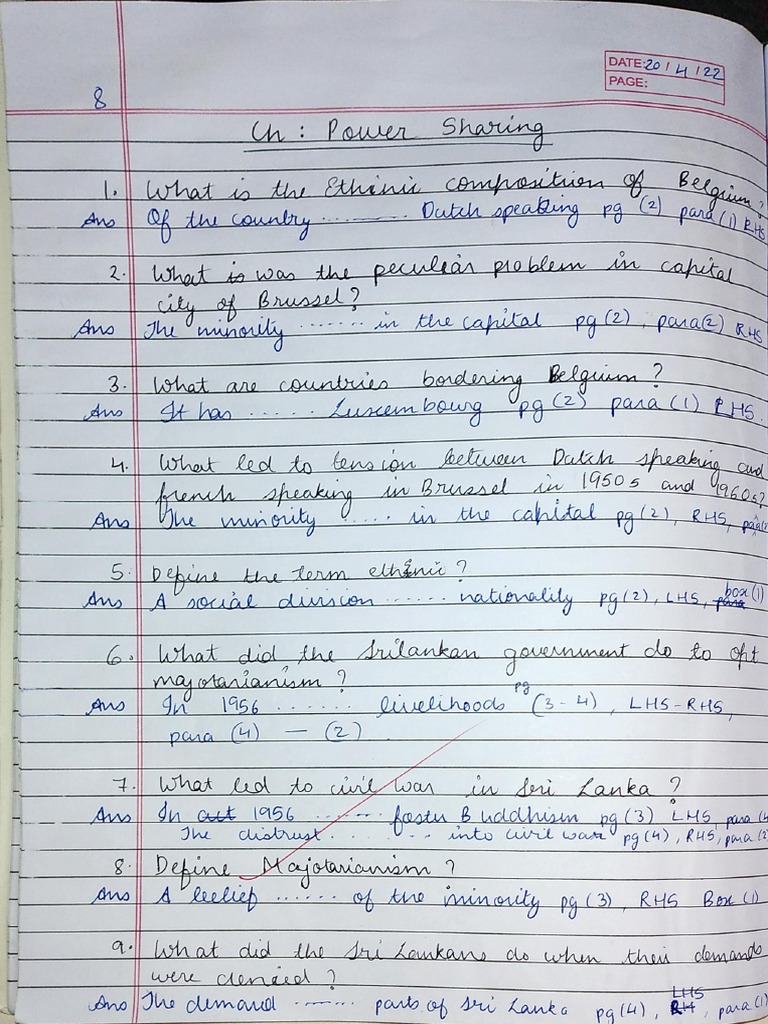 DATE: 20 / 4 / 22
PAGE:
8
Ch : Power Sharing
1. What is the Ethinic composition of Belgium?
Ans Of the country ........ Dutch speaking pg (2) para (1) RHS
2. What is was the peculiar problem in capital
city of Brussel?
Ans The minority ....... in the capital pg(2), para(2) RHS
3. What are countries bordering Belgium?
Ans It has ...... Luxembourg pg(2) para (1) RHS.
4. What led to tension between Dutch speaking and
french speaking in Brussel in 1950s and 1960s?
Ans The minority ...... in the capital pg(2), RHS,
5. Define the term ethinic?
Ans A social division ...... nationality pg(2), LHS, para box(1)
6. What did the Srilankan government do to opt
majotarianism?
Ans In 1956 ...... livelihoods pg (3-4), LHS-RHS,
para (4) — (2)
7. What led to civil war in Sri Lanka?
Ans In act 1956 ...... foster Buddhism pg(3) LHS, para (4
The distrust ......... into civil war pg(4), RHS, para (2
8. Define Majotarianism?
Ans A belief ...... of the minority pg(3), RHS Box (1)
9. What did the Sri Lankans do when their demands
were denied?
Ans The demand ....... parts of Sri Lanka pg(4), RH LHS, para (1)